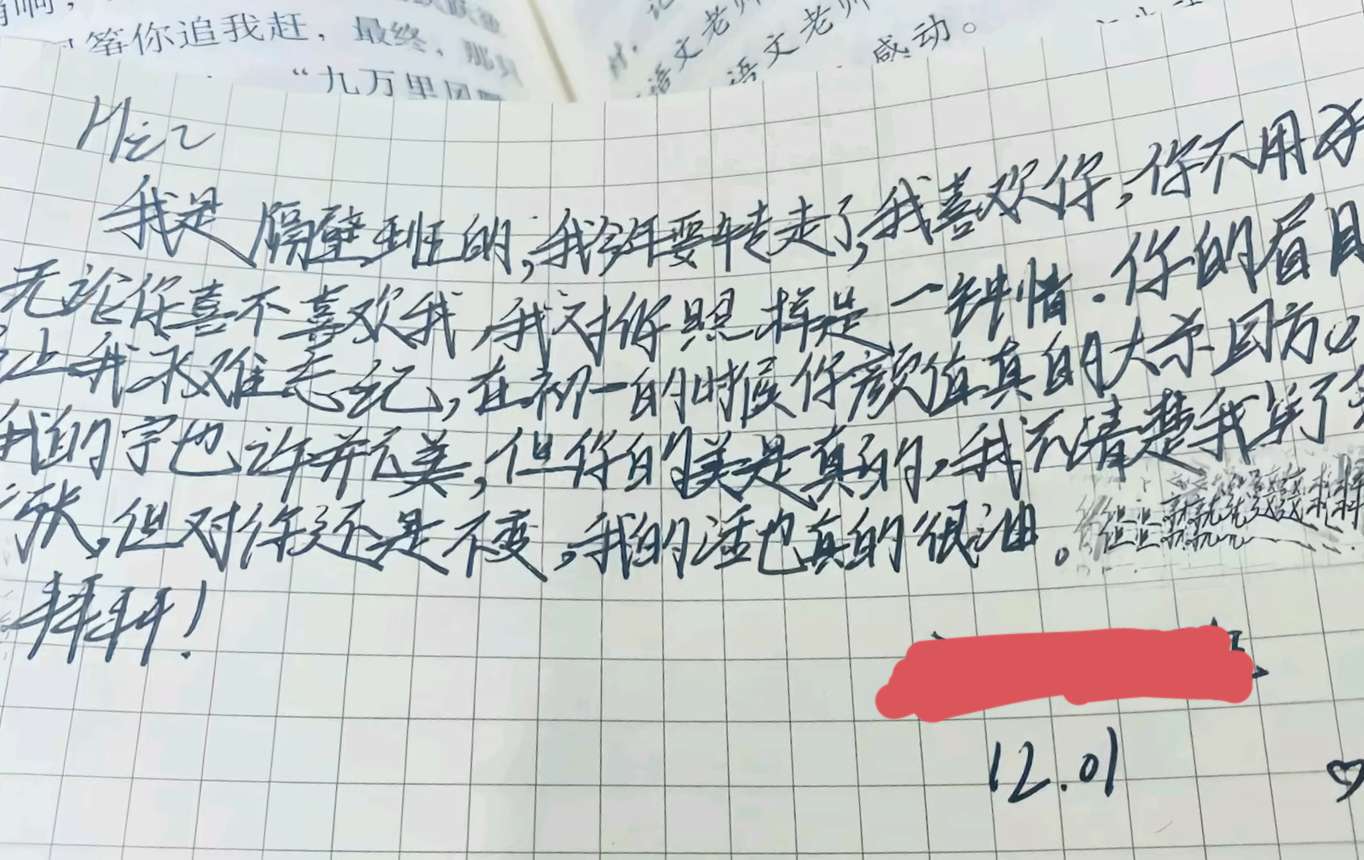 等你追我赶，最终，那只
"九万里风
记
语文老师
语文老师
感动。
我是隔壁班的，我今年要转走了，我喜欢你，你不用
无论你喜不喜欢我，我对你照样是一钟情.你的眉目
让我永难忘记，在初一的时候你颜值真的大杀四方
我的字也许并不美，但你的美是真的，我不清楚我写了
张，但对你还是不变，我的话也真的很油。
拜拜！
12.01